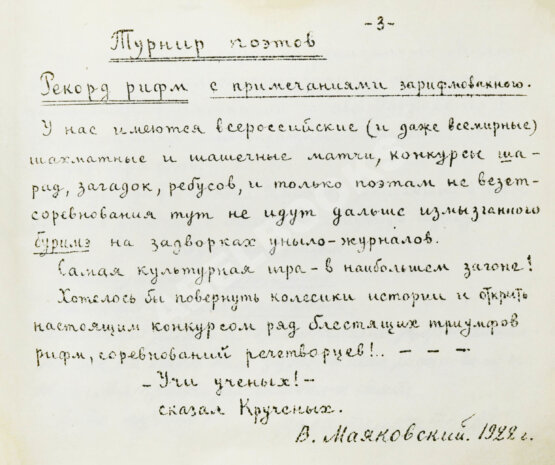 -3-
Турнир поэтов
Рекорд рифм с примечаниями зарифмованного.
У нас имеются всероссийские (и даже всемирные)
шахматные и шашечные матчи, конкурсы ша-
рад, загадок, ребусов, и только поэтам не везет-
соревнования тут не идут дальше измызганного
буримэ на задворках уныло-журналов.
Самая культурная игра - в наибольшем загоне!
Хотелось бы повернуть колесики истории и открыть
настоящим конкурсом ряд блестящих триумфов
рифм, соревнований речетворцев!.. - - -
- Учи ученых! -
сказал Крученых.
В. Маяковский. 1922 г.